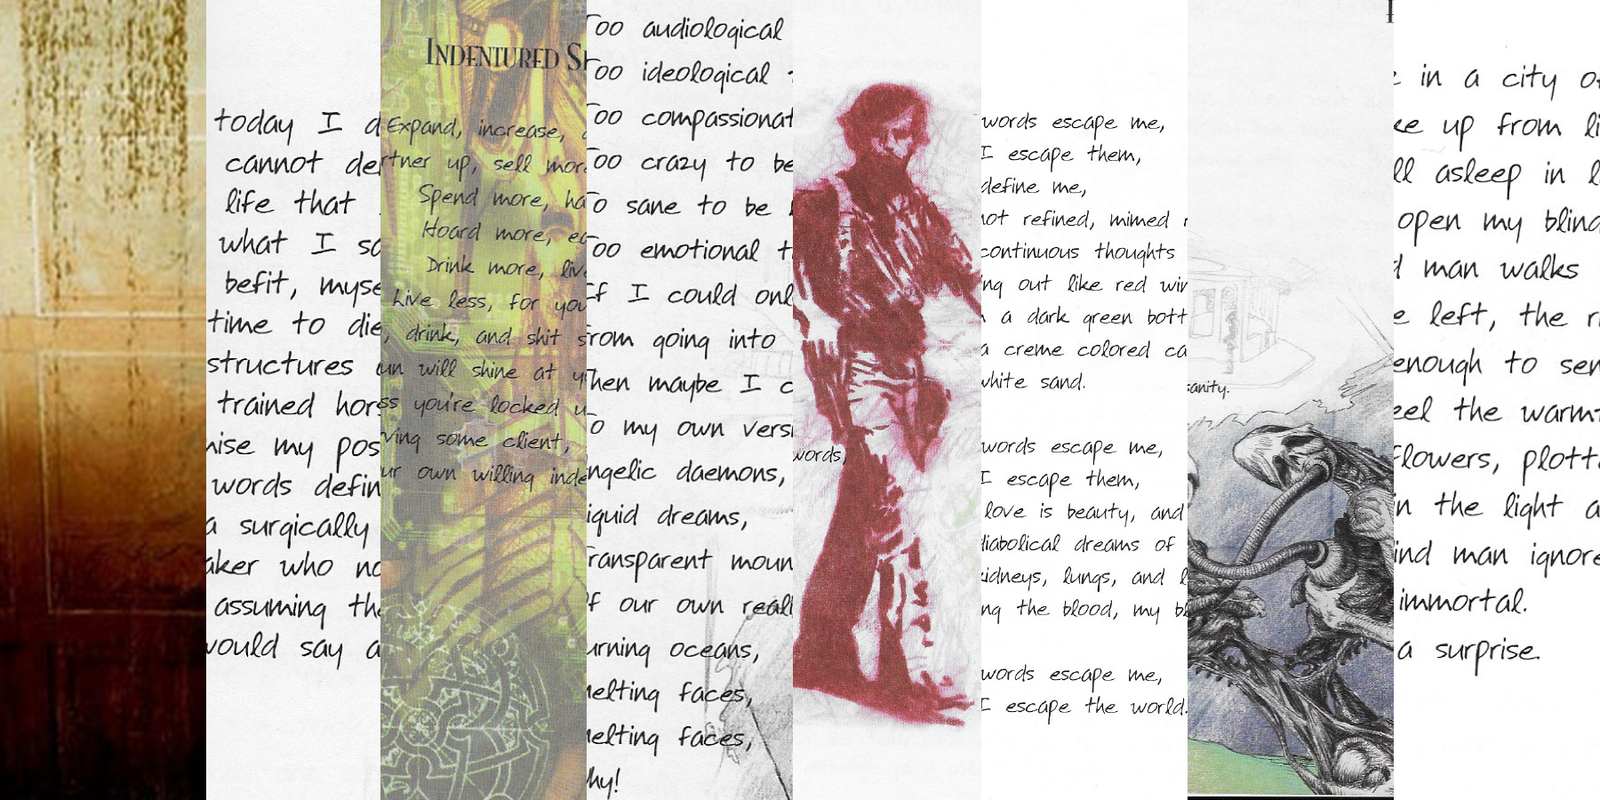 today I d
cannot de
life that
what I sa
befit, myse
time to die
structures
trained hor
nise my pos
words defin
a surgically
aker who no
assuming the
would say a
INDENTURED S
Expand, increase,
rtner up, sell mor
Spend more, ha
Hoard more, ea
Drink more, liv
Live less, for you
, drink, and shit s
un will shine at y
ss you're locked u
ving some client,
ur own willing inde
Too audiological
Too ideological
Too compassionat
Too crazy to be
To sane to be
Too emotional t
If I could onl
From going into
Then maybe I c
To my own versi
ngelic daemons,
iquid dreams,
Transparent moun
f our own reali
urning oceans,
melting faces,
melting faces,
hy!
words,
words escape me,
I escape them,
define me,
not refined, mimed
continuous thoughts
ng out like red win
a dark green bott
a creme colored ca
white sand.
words escape me,
I escape them,
love is beauty, and
diabolical dreams of
kidneys, lungs, and l
ng the blood, my bl
words escape me,
I escape the world.
sanity.
in a city of
ke up from li
ll asleep in l
open my blind
d man walks
e left, the ri
enough to sen
eel the warmt
flowers, plott
in the light a
ind man ignore
immortal.
a surprise.